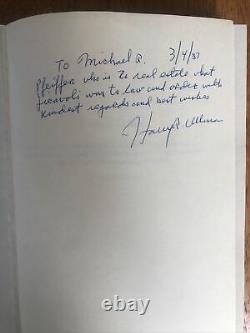 To Michael P. 3/4/87
Pfeiffer who is to real estate what
was to law and order with
kindest regards and best wishes
Harry
ebay